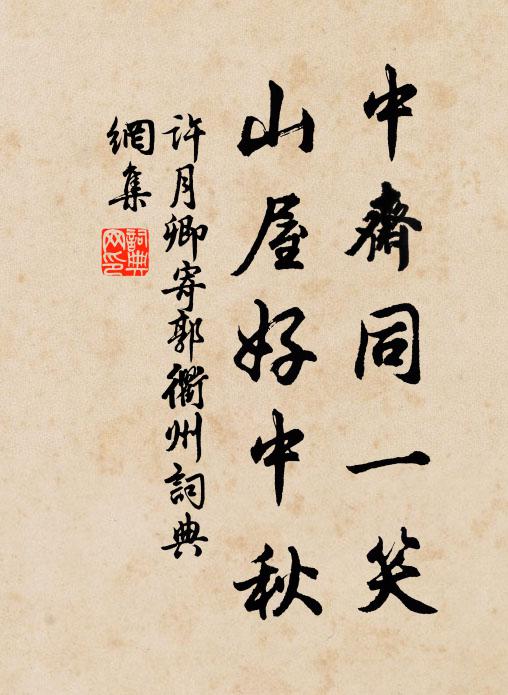 中齋同一笑
山屋好中秋
許月卿寄郭衢州詞典
網集
詞典
网印